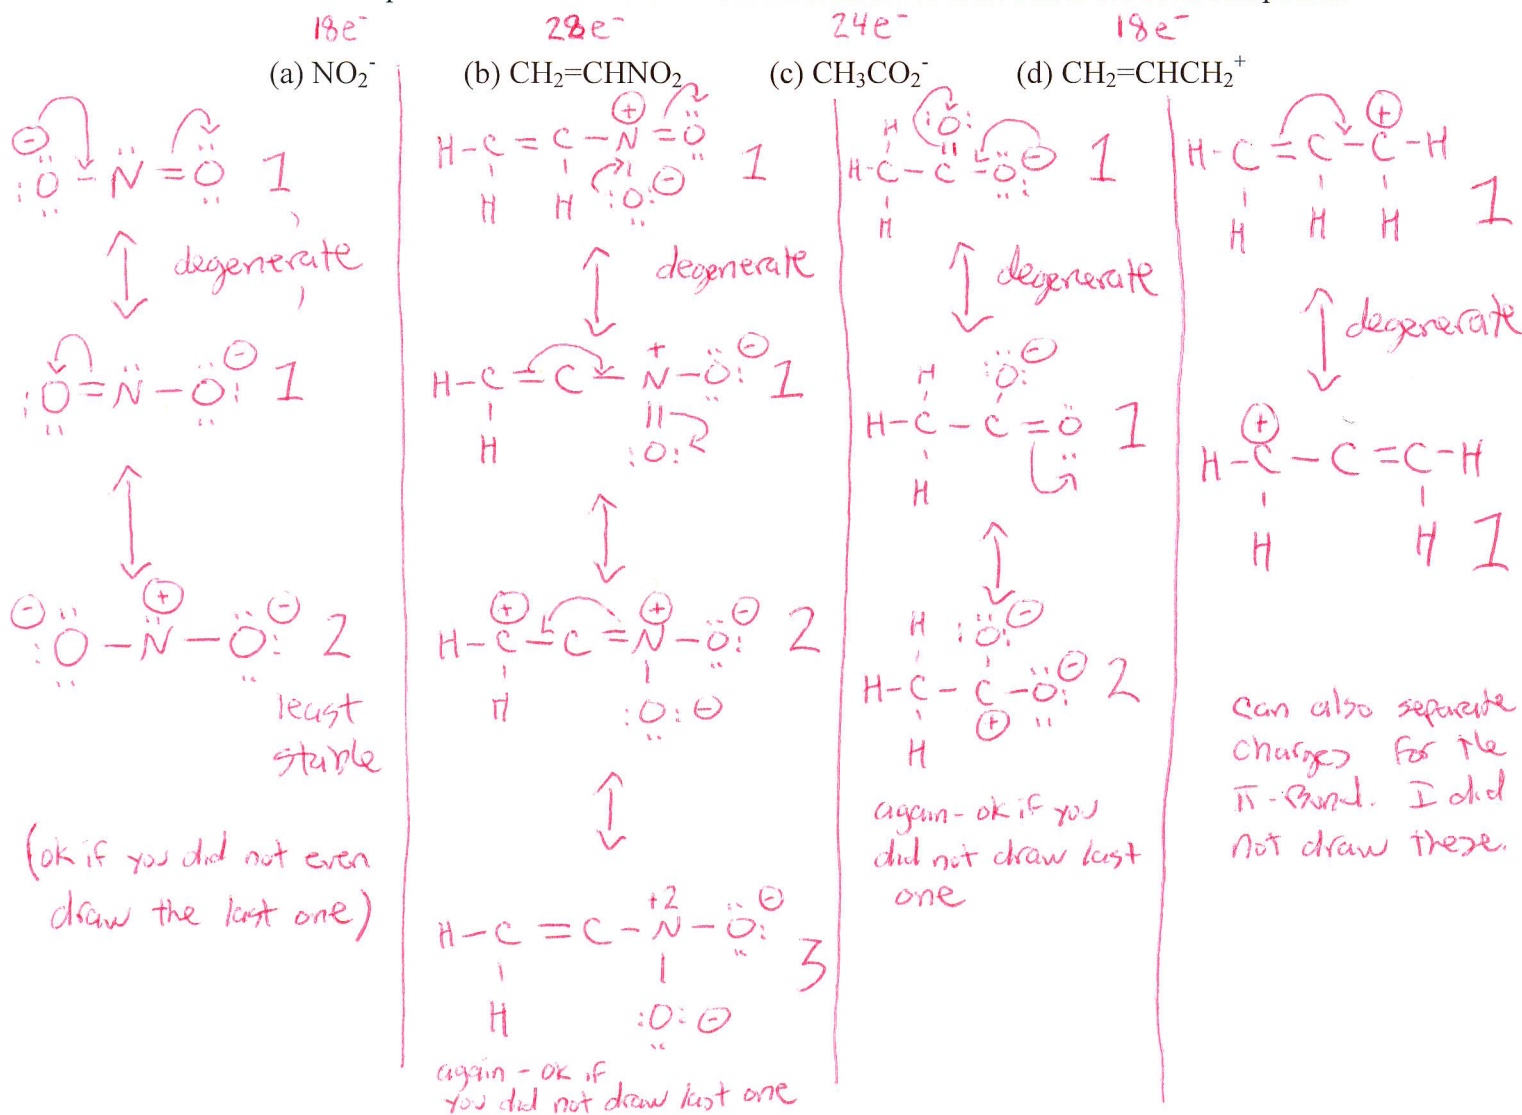 18e⁻ 28e⁻ 24e⁻ 18e⁻
(a) NO₂⁻ (b) CH₂=CHNO₂ (c) CH₃CO₂⁻ (d) CH₂=CHCH₂⁺
:O - N = O 1
degenerate
:O = N - O: 1
:O - N - O: 2
least
stable
(ok if you did not even
draw the last one)
H-C = C - N = O 1
H H :O:
degenerate
H-C = C - N - O: 1
H :O:
H-C - C = N - O: 2
H :O:
+2
H-C = C - N - O: 3
H :O:
again - ok if
you did not draw last one
H :O:
H-C - C - O 1
H
degenerate
H :O:
H-C - C = O 1
H
H :O:
H-C - C - O: 2
H
again - ok if you
did not draw last
one
H-C = C - C-H
H H H 1
degenerate
H-C - C = C-H
H H 1
can also separate
charges for the
π-Bond. I did
not draw these.